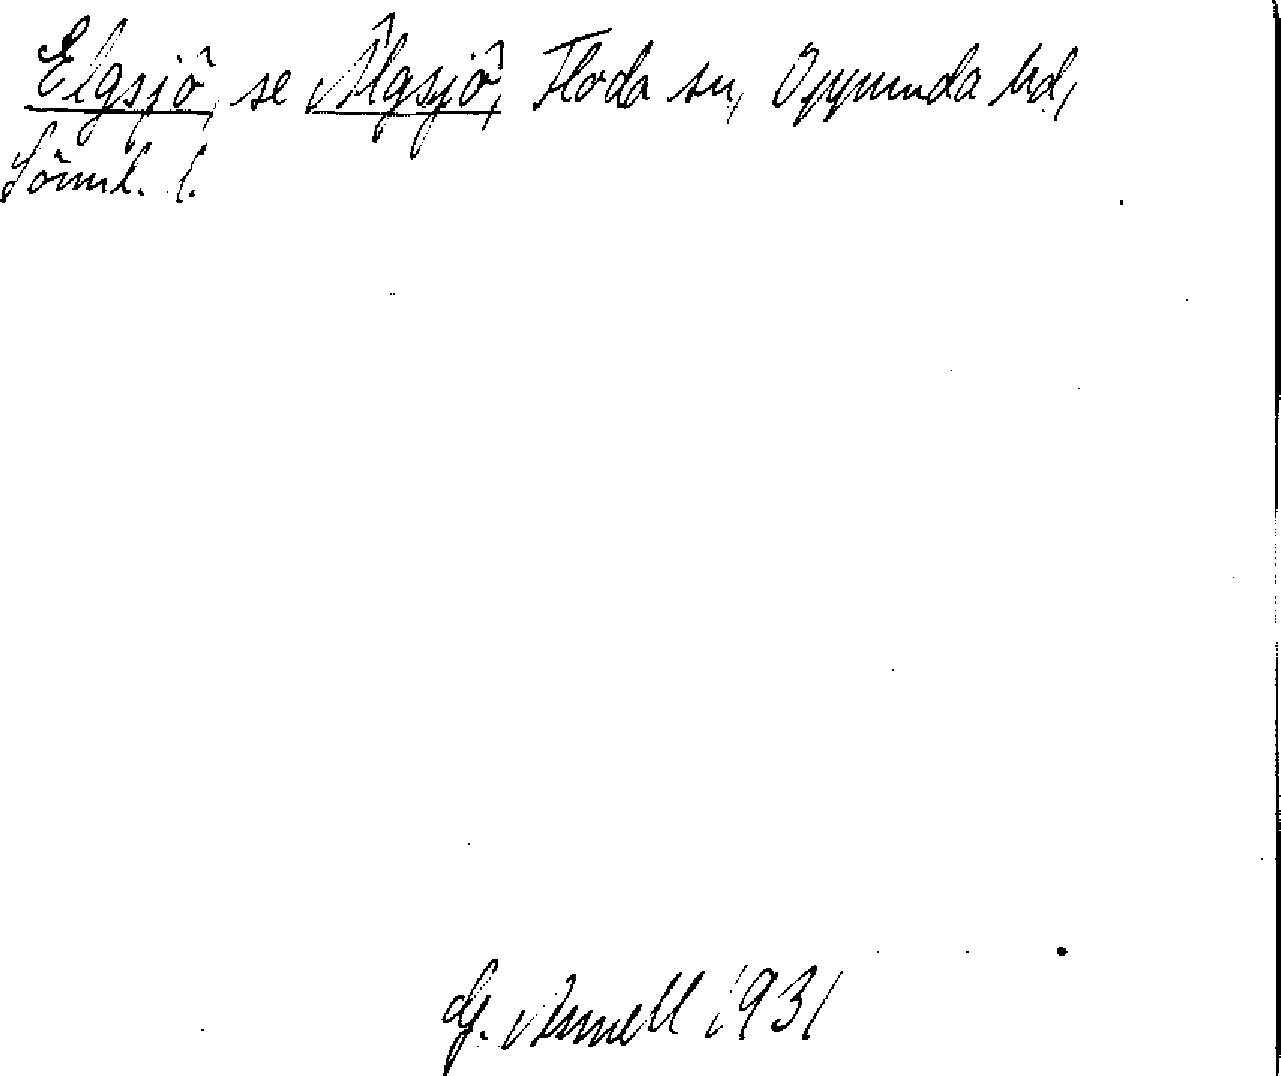 Elgsjö, se Älgsjö, Floda sn, Oppunda hd,
Södml. l.
G. Arnell 1931